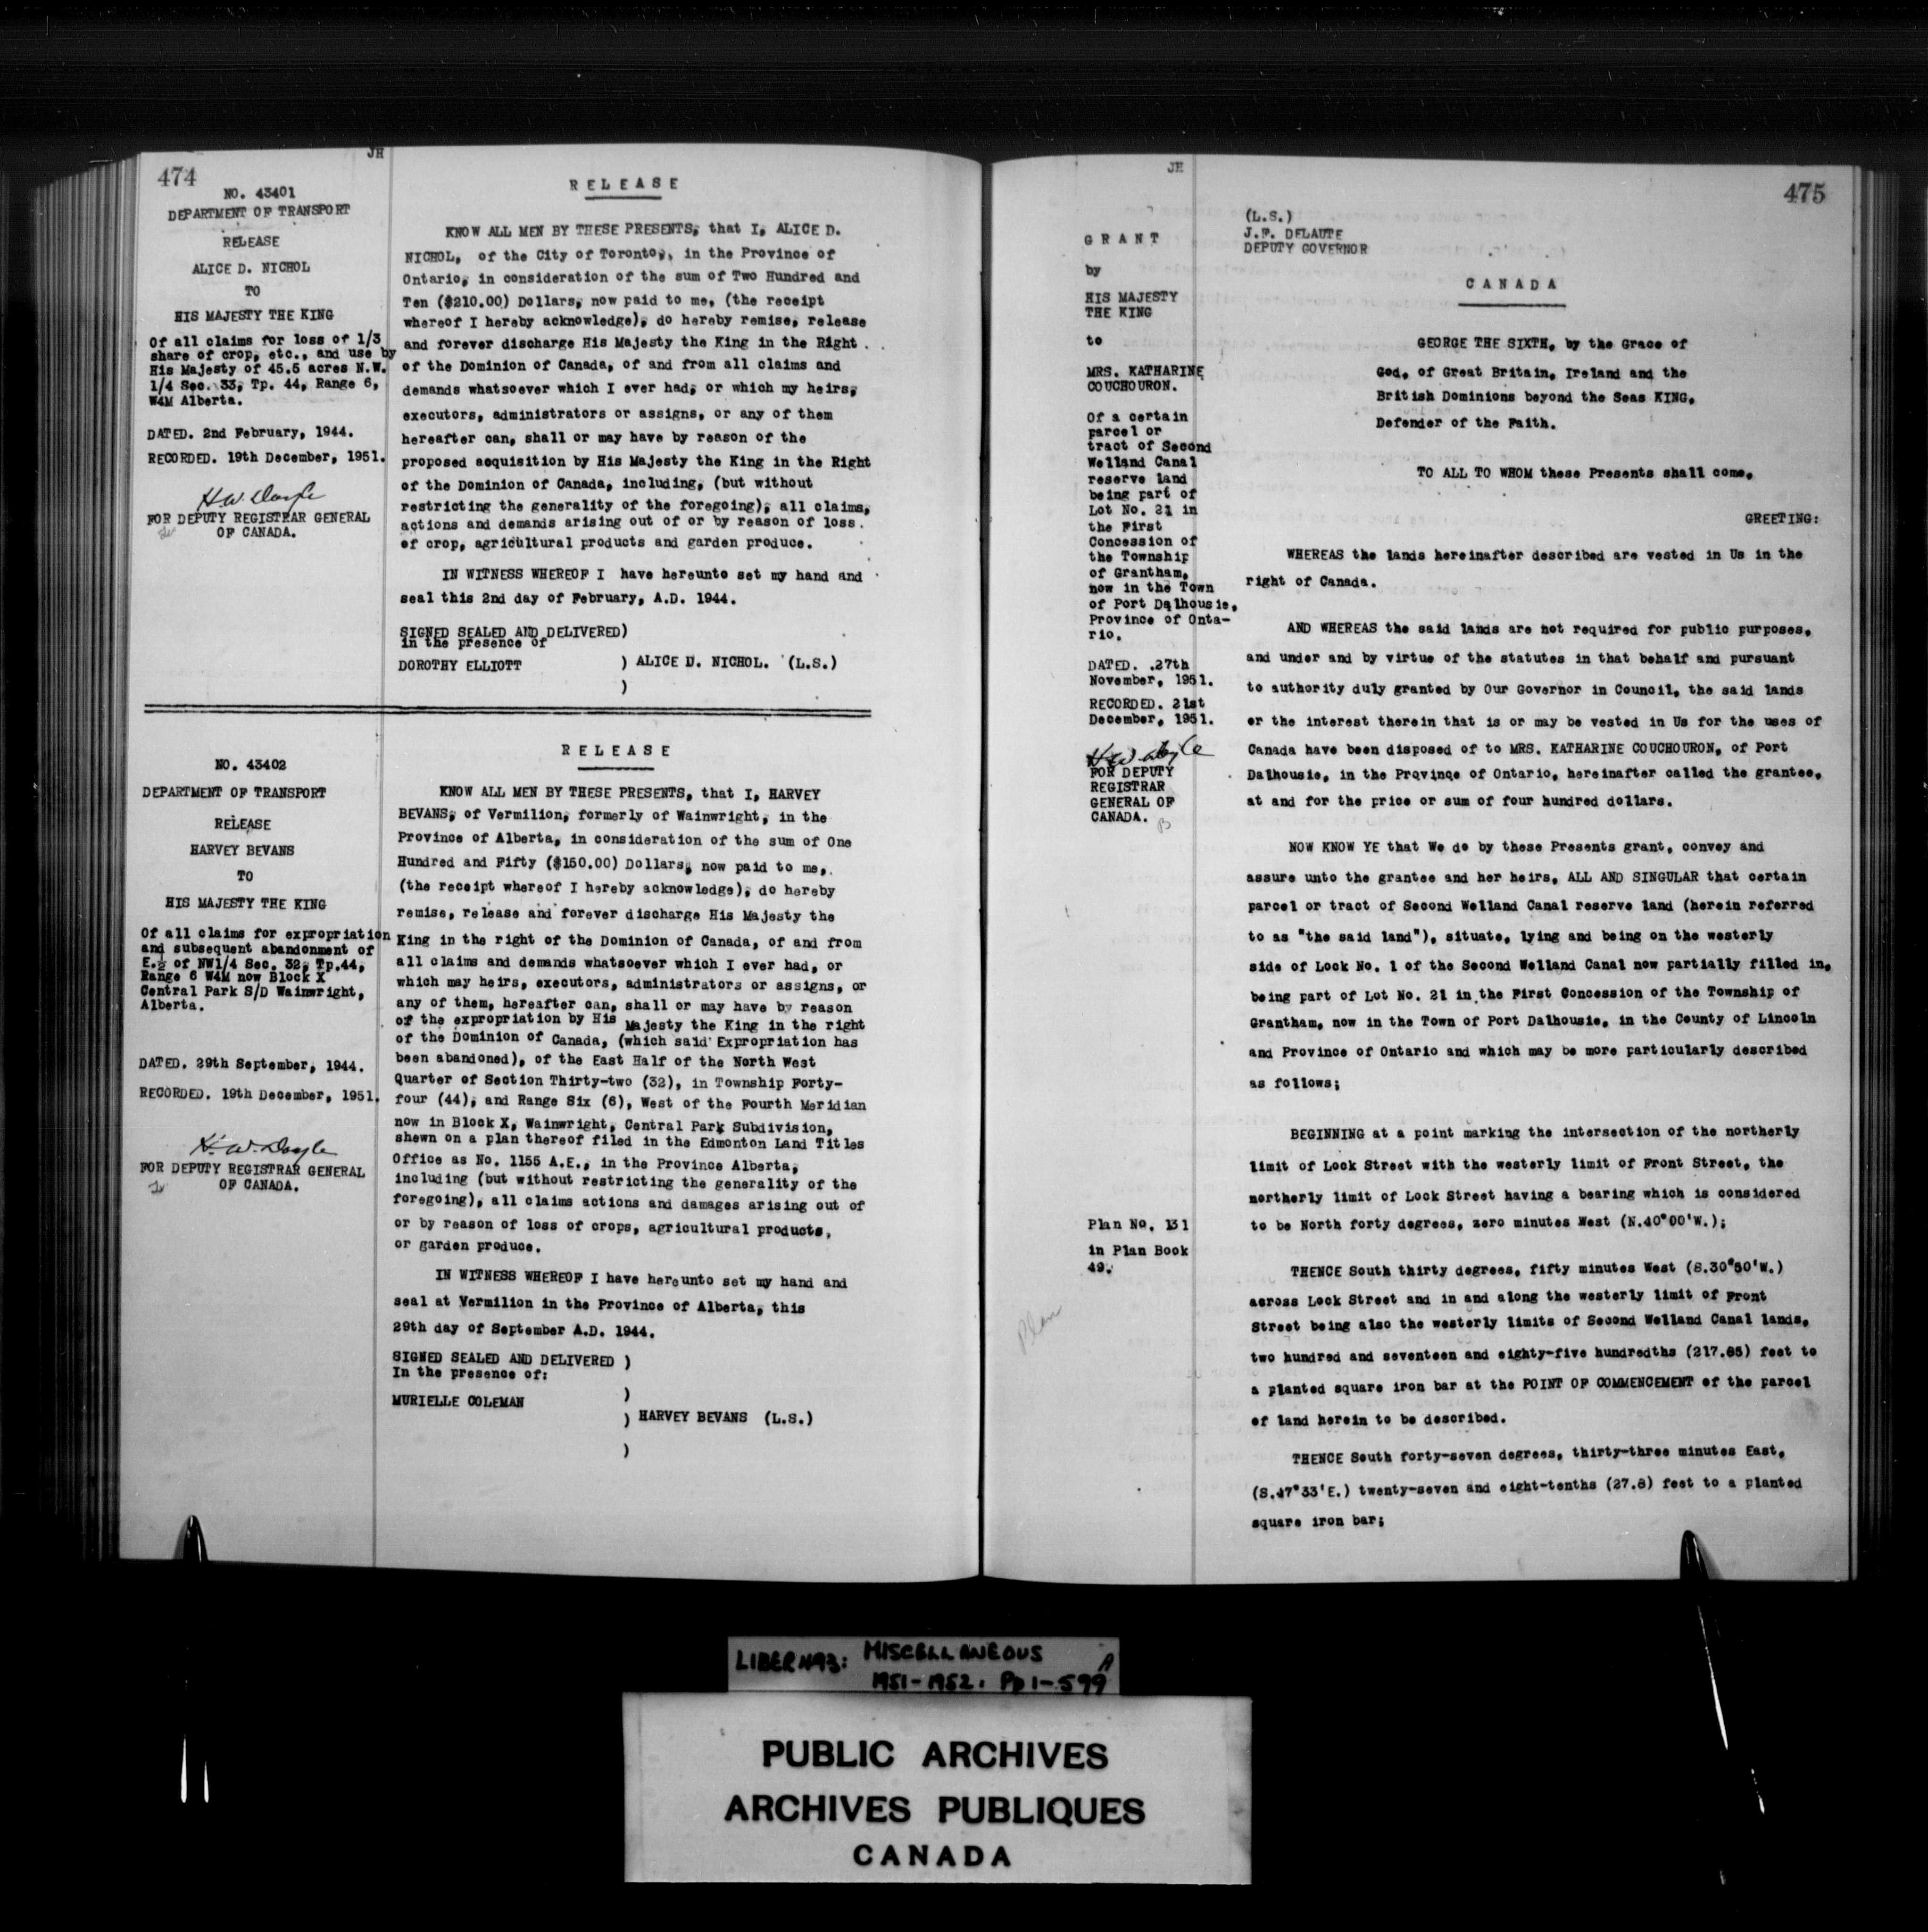 474
JH
NO. 43401
DEPARTMENT OF TRANSPORT
RELEASE
ALICE D. NICHOL
TO
HIS MAJESTY THE KING
Of all claims for loss of 1/3
share of crop, etc., and use by
His Majesty of 45.5 acres N.W.
1/4 Sec. 33, Tp. 44, Range 6,
W4M Alberta.
DATED. 2nd February, 1944.
RECORDED. 19th December, 1951.
H.W. Doyle
FOR DEPUTY REGISTRAR GENERAL
OF CANADA.
RELEASE
KNOW ALL MEN BY THESE PRESENTS, that I, ALICE D.
NICHOL, of the City of Toronto, in the Province of
Ontario, in consideration of the sum of Two Hundred and
Ten ($210.00) Dollars, now paid to me, (the receipt
whereof I hereby acknowledge), do hereby remise, release
and forever discharge His Majesty the King in the Right
of the Dominion of Canada, of and from all claims and
demands whatsoever which I ever had, or which my heirs,
executors, administrators or assigns, or any of them
hereafter can, shall or may have by reason of the
proposed acquisition by His Majesty the King in the Right
of the Dominion of Canada, including, (but without
restricting the generality of the foregoing), all claims,
actions and demands arising out of or by reason of loss.
of crop, agricultural products and garden produce.
IN WITNESS WHEREOF I have hereunto set my hand and
seal this 2nd day of February, A.D. 1944.
SIGNED SEALED AND DELIVERED)
in the presence of
DOROTHY ELLIOTT ) ALICE D. NICHOL. (L.S.)
)
NO. 43402
DEPARTMENT OF TRANSPORT
RELEASE
HARVEY BEVANS
TO
HIS MAJESTY THE KING
Of all claims for expropriation
and subsequent abandonment of
E.½ of NW1/4 Sec. 32, Tp.44,
Range 6 W4M now Block X
Central Park S/D Wainwright,
Alberta.
DATED. 29th September, 1944.
RECORDED. 19th December, 1951.
H.W. Doyle
FOR DEPUTY REGISTRAR GENERAL
OF CANADA.
RELEASE
KNOW ALL MEN BY THESE PRESENTS, that I, HARVEY
BEVANS, of Vermilion, formerly of Wainwright, in the
Province of Alberta, in consideration of the sum of One
Hundred and Fifty ($150.00) Dollars, now paid to me,
(the receipt whereof I hereby acknowledge), do hereby
remise, release and forever discharge His Majesty the
King in the right of the Dominion of Canada, of and from
all claims and demands whatsoever which I ever had, or
which may heirs, executors, administrators or assigns, or
any of them, hereafter can, shall or may have by reason
of the expropriation by His Majesty the King in the right
of the Dominion of Canada, (which said Expropriation has
been abandoned), of the East Half of the North West
Quarter of Section Thirty-two (32), in Township Forty-
four (44), and Range Six (6), West of the Fourth Meridian
now in Block X, Wainwright, Central Park Subdivision,
shewn on a plan thereof filed in the Edmonton Land Titles
Office as No. 1155 A.E., in the Province Alberta,
including (but without restricting the generality of the
foregoing), all claims actions and damages arising out of
or by reason of loss of crops, agricultural products,
or garden produce.
IN WITNESS WHEREOF I have hereunto set my hand and
seal at Vermilion in the Province of Alberta, this
29th day of September A.D. 1944.
SIGNED SEALED AND DELIVERED )
In the presence of:
)
MURIELLE COLEMAN
) HARVEY BEVANS (L.S.)
)
JH
475
GRANT
by
HIS MAJESTY
THE KING
to
MRS. KATHARINE
COUCHOURON.
Of a certain
parcel or
tract of Second
Welland Canal
reserve land
being part of
Lot No. 21 in
the First
Concession of
the Township
of Grantham,
now in the Town
of Port Dalhousie,
Province of Onta-
rio.
DATED. 27th
November, 1951.
RECORDED. 21st
December, 1951.
H.W. Doyle
FOR DEPUTY
REGISTRAR
GENERAL OF
CANADA.
Plan No. 131
in Plan Book
49.
Plan
(L.S.)
J.F. DELAUTE
DEPUTY GOVERNOR
CANADA
GEORGE THE SIXTH, by the Grace of
God, of Great Britain, Ireland and the
British Dominions beyond the Seas KING,
Defender of the Faith.
TO ALL TO WHOM these Presents shall come,
GREETING:
WHEREAS the lands hereinafter described are vested in Us in the
right of Canada.
AND WHEREAS the said lands are not required for public purposes,
and under and by virtue of the statutes in that behalf and pursuant
to authority duly granted by Our Governor in Council, the said lands
or the interest therein that is or may be vested in Us for the uses of
Canada have been disposed of to MRS. KATHARINE COUCHOURON, of Port
Dalhousie, in the Province of Ontario, hereinafter called the grantee,
at and for the price or sum of four hundred dollars.
NOW KNOW YE that We do by these Presents grant, convey and
assure unto the grantee and her heirs, ALL AND SINGULAR that certain
parcel or tract of Second Welland Canal reserve land (herein referred
to as "the said land"), situate, lying and being on the westerly
side of Lock No. 1 of the Second Welland Canal now partially filled in,
being part of Lot No. 21 in the First Concession of the Township of
Grantham, now in the Town of Port Dalhousie, in the County of Lincoln
and Province of Ontario and which may be more particularly described
as follows;
BEGINNING at a point marking the intersection of the northerly
limit of Lock Street with the westerly limit of Front Street, the
northerly limit of Lock Street having a bearing which is considered
to be North forty degrees, zero minutes West (N.40°00'W.);
THENCE South thirty degrees, fifty minutes West (S.30°50'W.)
across Lock Street and in and along the westerly limit of Front
Street being also the westerly limits of Second Welland Canal lands,
two hundred and seventeen and eighty-five hundredths (217.85) feet to
a planted square iron bar at the POINT OF COMMENCEMENT of the parcel
of land herein to be described.
THENCE South forty-seven degrees, thirty-three minutes East,
(S.47°33'E.) twenty-seven and eight-tenths (27.8) feet to a planted
square iron bar;
LIBER 493: MISCELLANEOUS A
1951-1952. Pp 1-599
PUBLIC ARCHIVES
ARCHIVES PUBLIQUES
CANADA